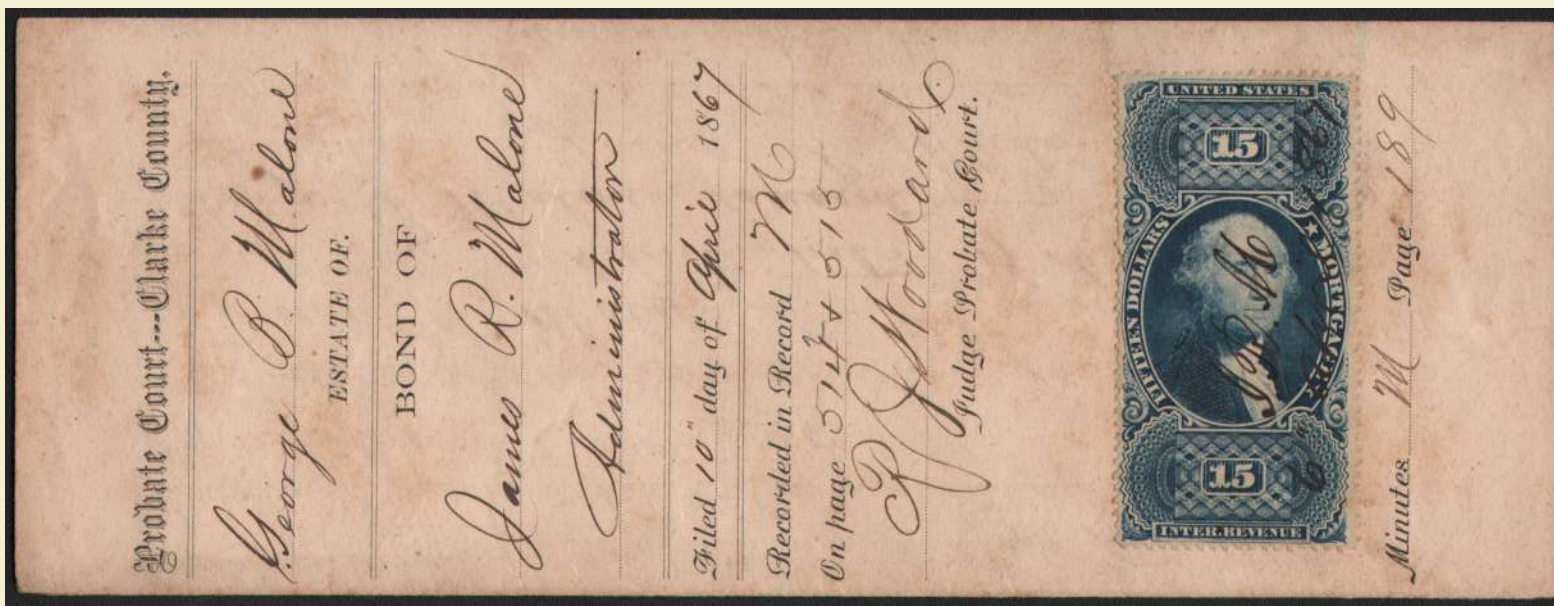 Probate Court---Clarke County.
George B. Malone
ESTATE OF.
BOND OF
James R. Malone
Administrator
Filed 10" day of April 1867
Recorded in Record M
On page 514 & 515
R J Woodard
Judge Probate Court.
UNITED STATES
15
FIFTEEN DOLLARS
★ MORTGAGE
J R M
1867
15
INTER. REVENUE
Minutes M Page 189